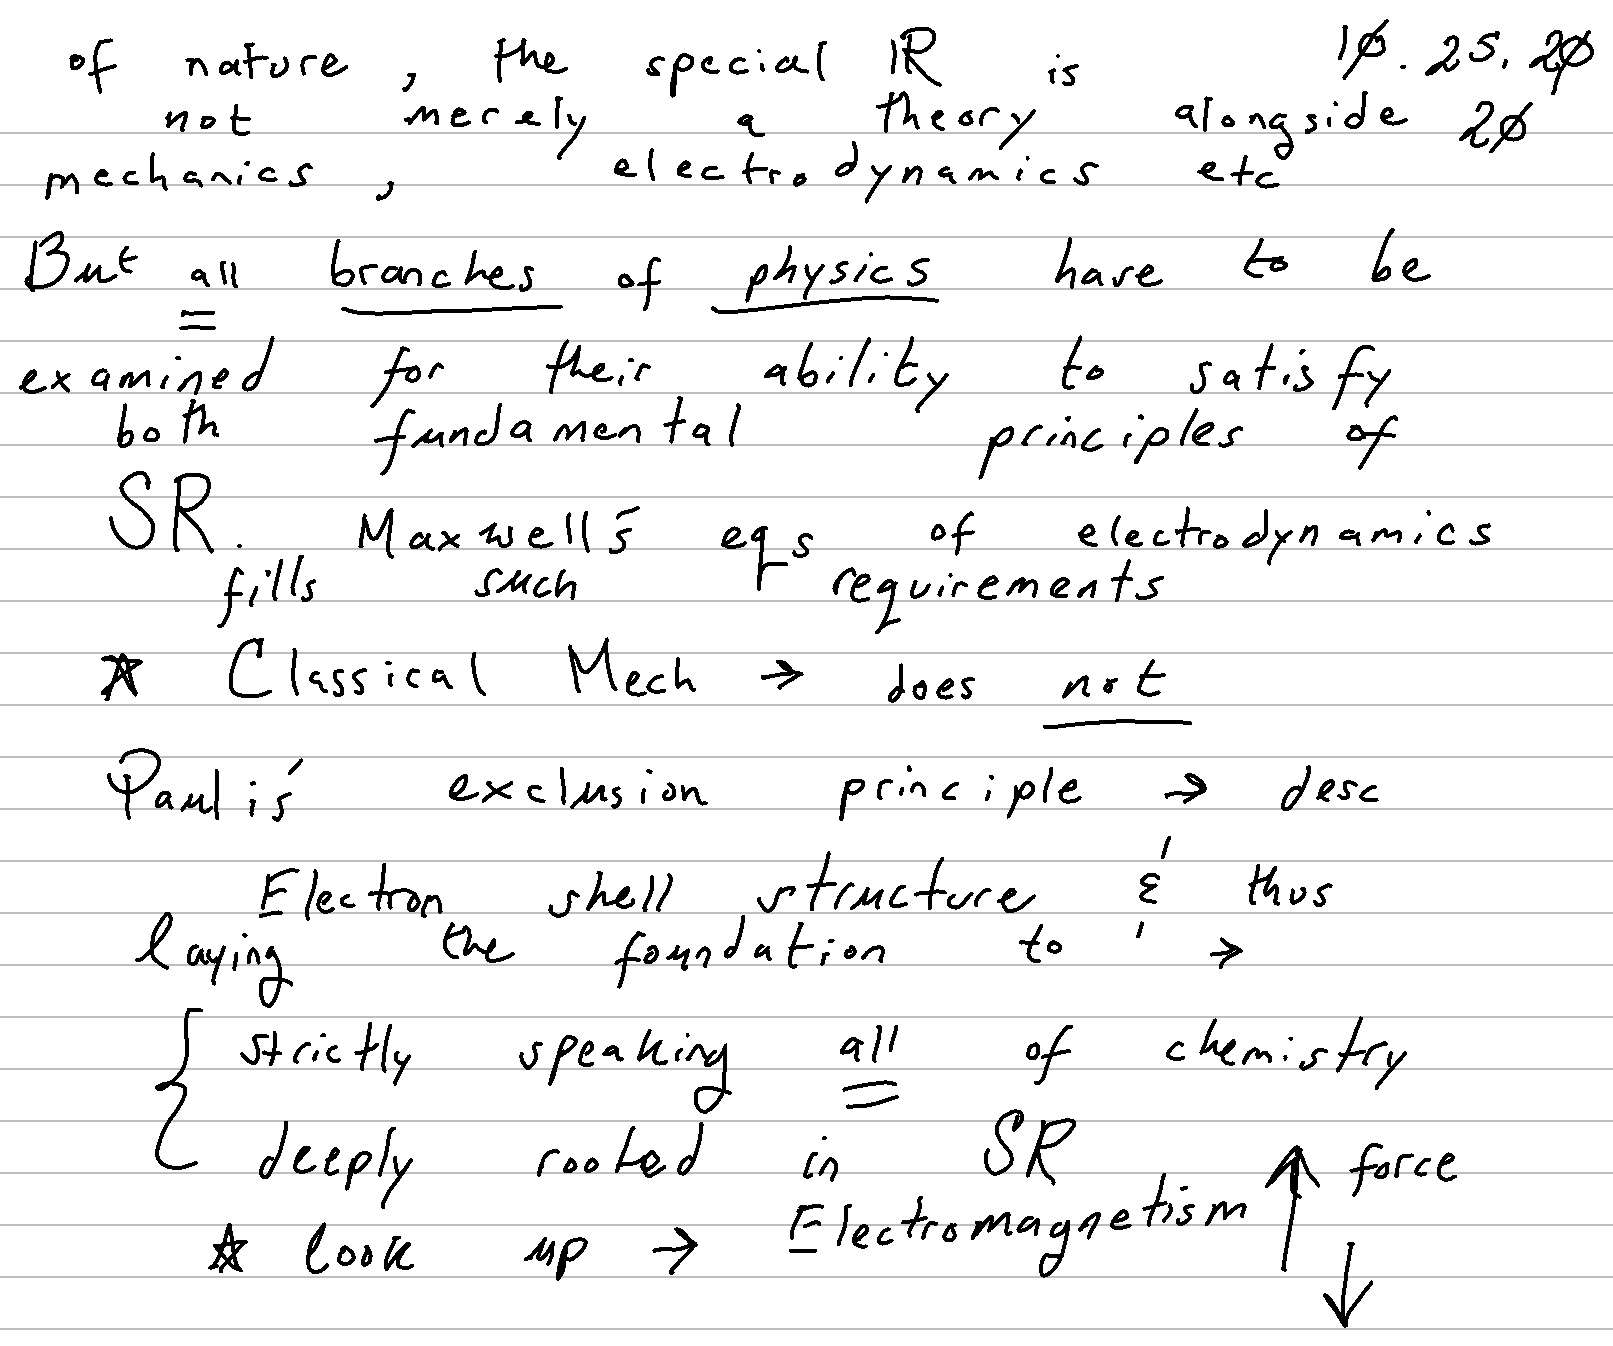 of nature, the special R is 10.25.20
not merely a theory alongside 20
mechanics, electrodynamics etc
But all branches of physics have to be
examined for their ability to satisfy
both fundamental principles of
SR. Maxwell's eqs of electrodynamics
fills such requirements
☆ Classical Mech → does not
Pauli's exclusion principle → desc
Electron shell structure & thus
laying the foundation to →
{ strictly speaking all of chemistry
deeply rooted in SR ↑ force
☆ look up → Electromagnetism ↓